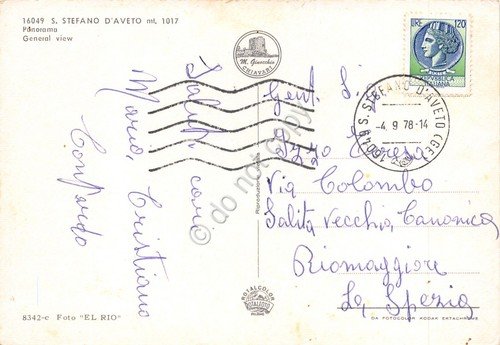 16049 S. STEFANO D'AVETO mt. 1017
Panorama
General view
M. Ginocchio
CHIAVARI
LIRE 120
16049 S. STEFANO D'AVETO (GE)
-4. 9 78-14
Saluti cari
Mario, Cristiano
Gent. Sig.
Izzo Teresa
Via Colombo
Salita Vecchia Canonica
Riomaggiore
La Spezia
do not copy
ROTALCOLOR
ROTALFOTO
MILANO
8342-c Foto "EL RIO"
DA FOTOCOLOR KODAK EKTACHROME